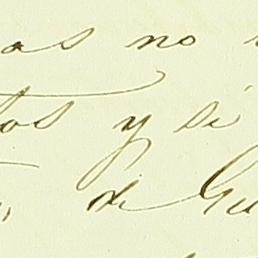 as no
tos y si
de Gu